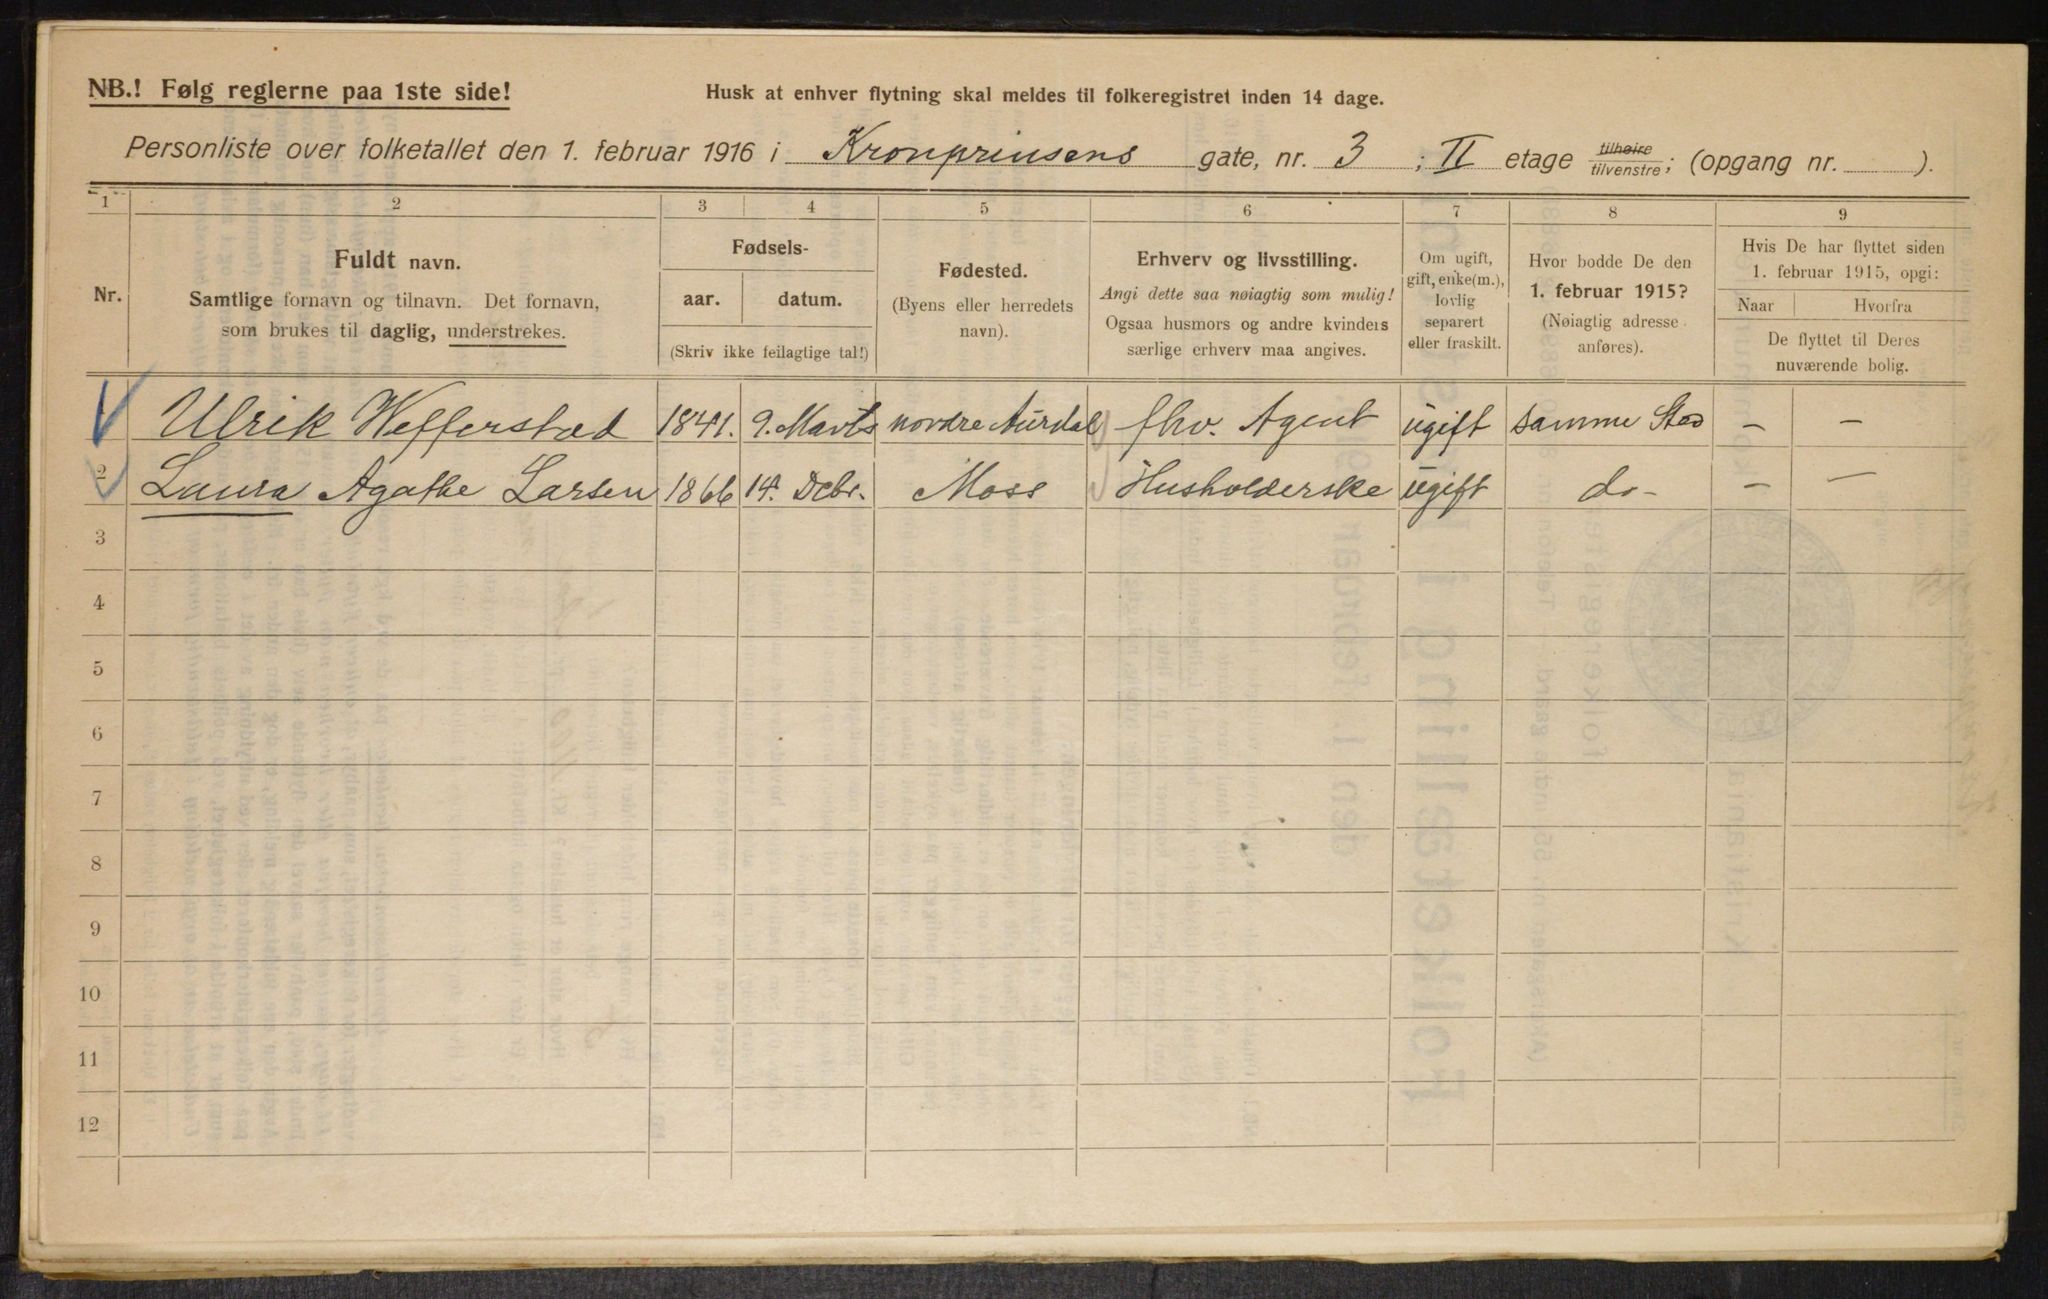 NB.! Følg reglerne paa 1ste side!
Husk at enhver flytning skal meldes til folkeregistret inden 14 dage.
Personliste over folketallet den 1. februar 1916 i Kronprinsens gate, nr. 3 ; II etage tilhøire tilvenstre; (opgang nr. ).
1 2 3 4 5 6 7 8 9
Nr.
Fuldt navn.
Samtlige fornavn og tilnavn. Det fornavn,
som brukes til daglig, understrekes.
Fødsels-
aar. datum.
(Skriv ikke feilagtige tal!)
Fødested.
(Byens eller herredets
navn).
Erhverv og livsstilling.
Angi dette saa nøiagtig som mulig!
Ogsaa husmors og andre kvinders
særlige erhverv maa angives.
Om ugift,
gift, enke(m.),
lovlig
separert
eller fraskilt.
Hvor bodde De den
1. februar 1915?
(Nøiagtig adresse
anføres).
Hvis De har flyttet siden
1. februar 1915, opgi:
Naar Hvorfra
De flyttet til Deres
nuværende bolig.
1 Ulrik Wefferstad 1841. 9. Marts nordre Aurdal fhv. Agent ugift samme Sted – –
2 Laura Agathe Larsen 1866 14. Debr. Moss Husholderske ugift do – – –
3
4
5
6
7
8
9
10
11
12